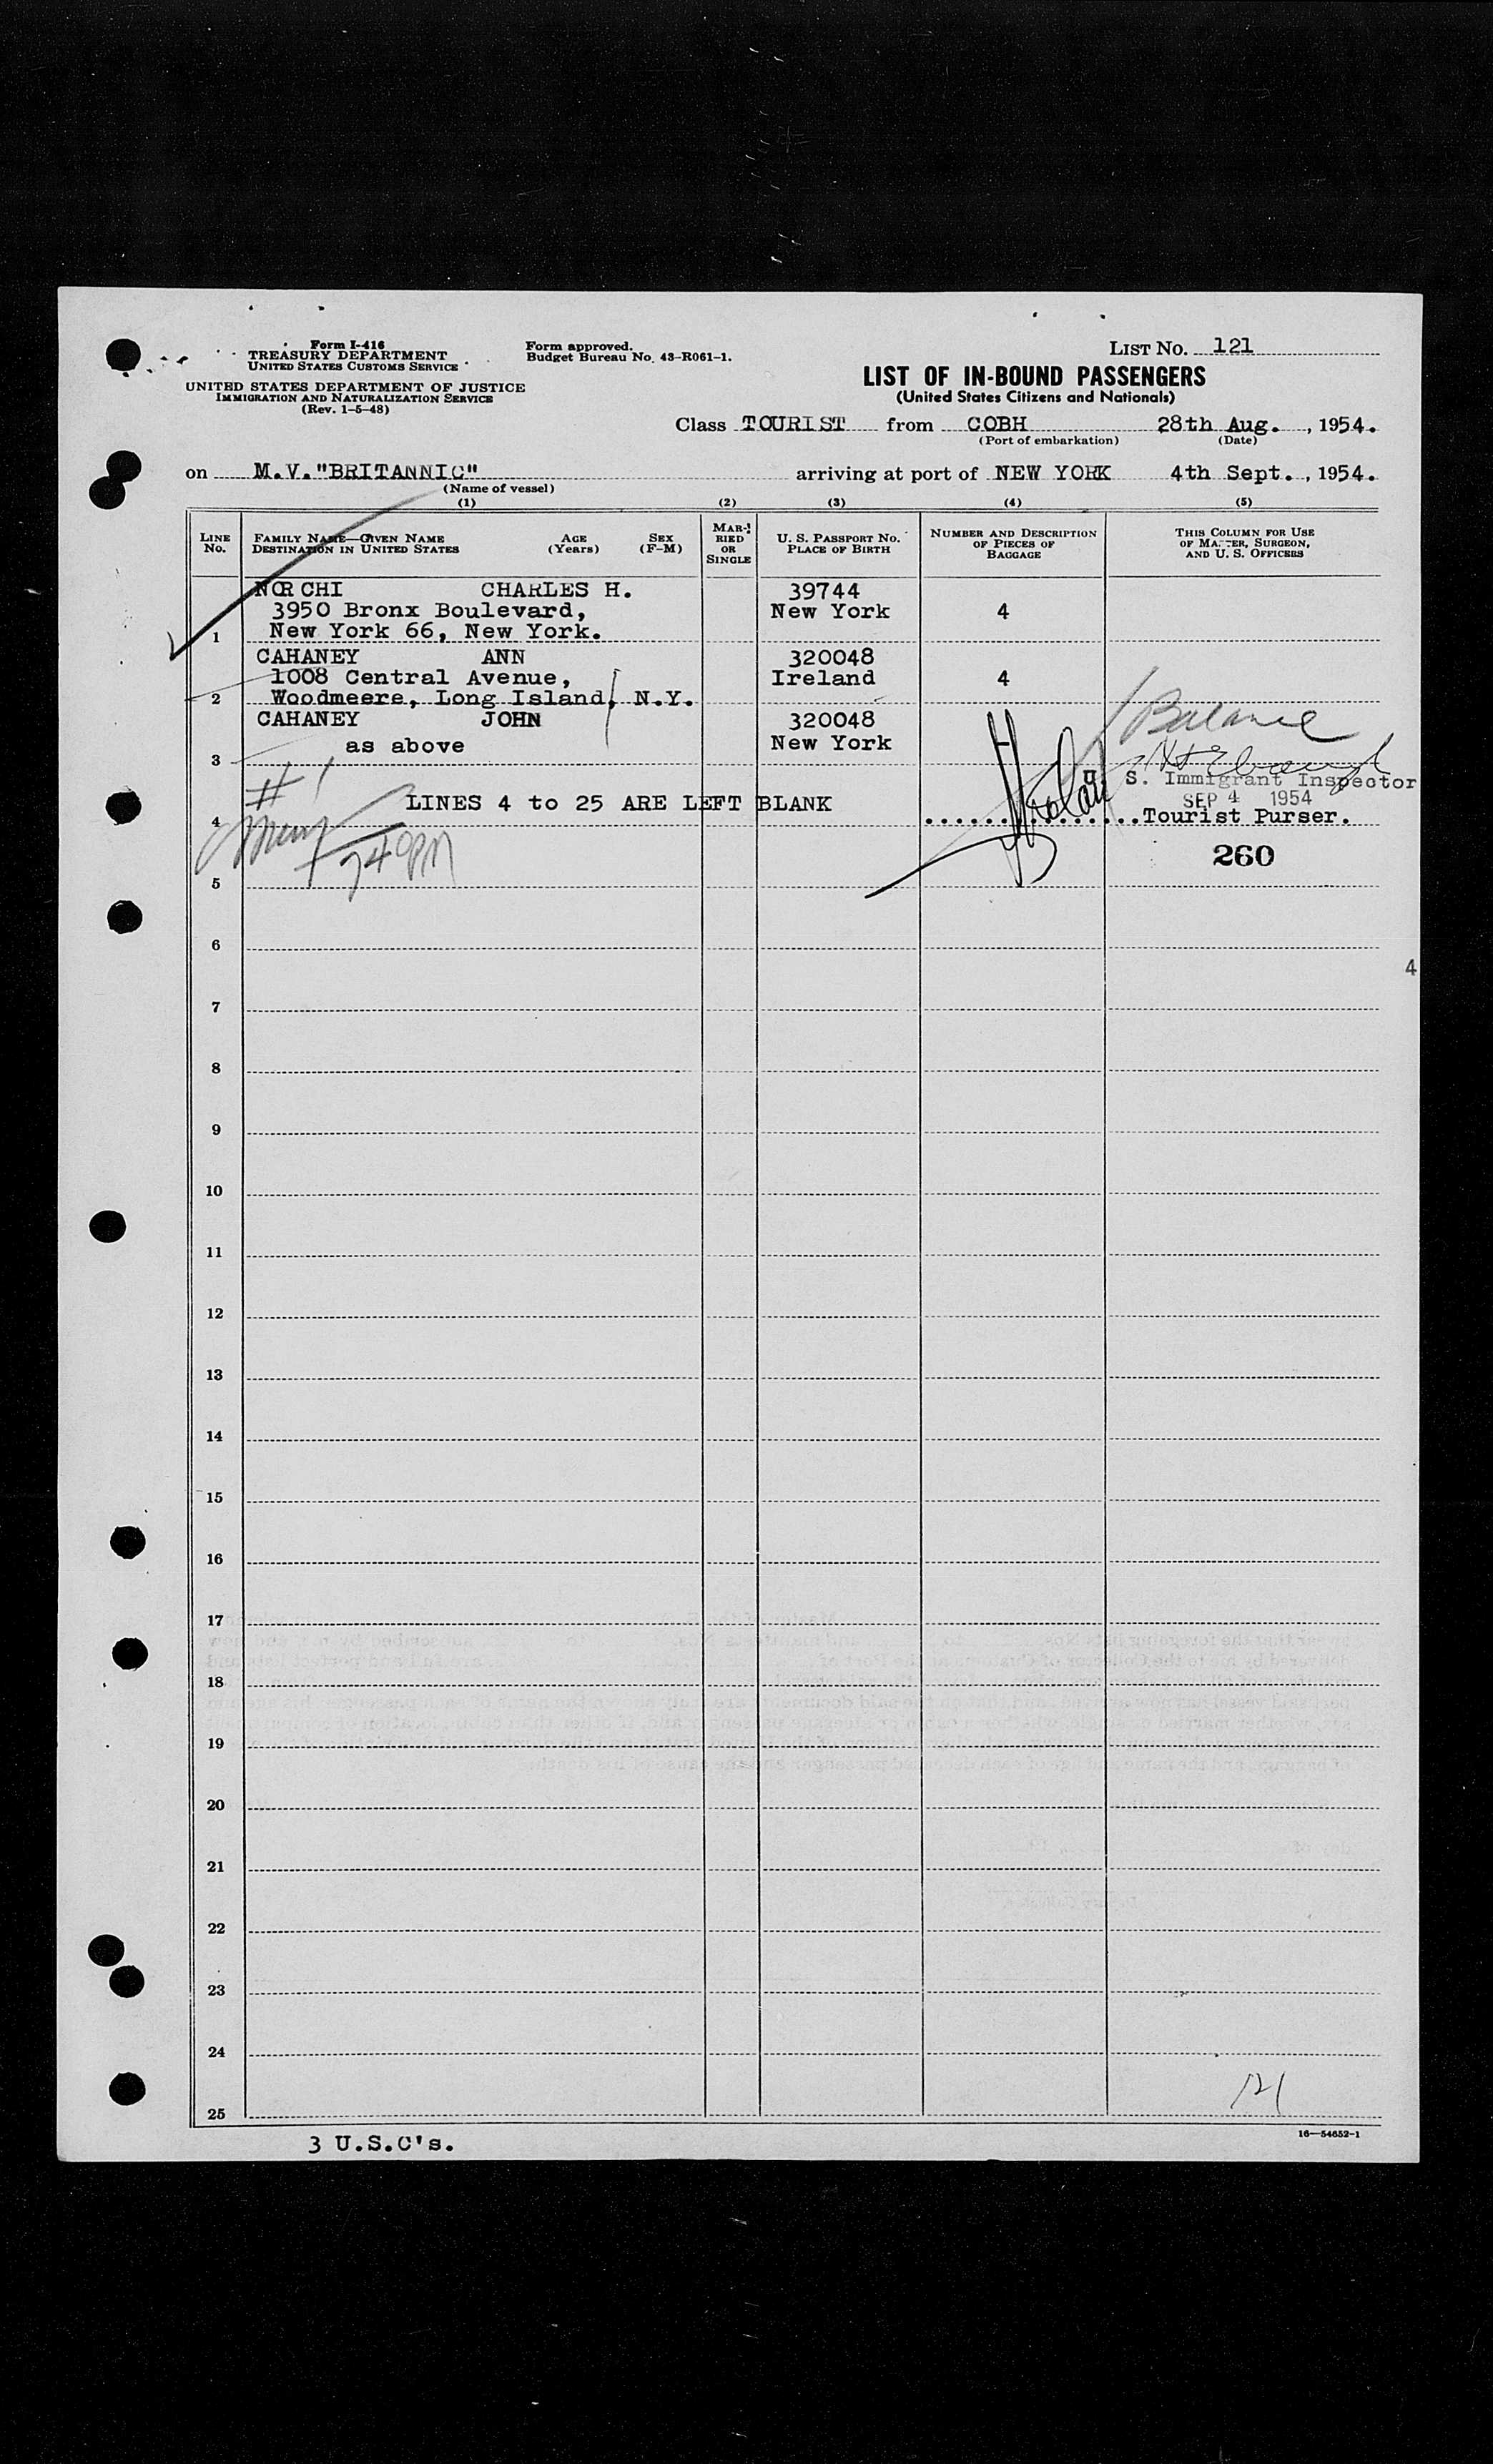 Form I-416
TREASURY DEPARTMENT
UNITED STATES CUSTOMS SERVICE
UNITED STATES DEPARTMENT OF JUSTICE
IMMIGRATION AND NATURALIZATION SERVICE
(Rev. 1-5-48)
Form approved.
Budget Bureau No. 43-R061-1.
LIST NO. 121
LIST OF IN-BOUND PASSENGERS
(United States Citizens and Nationals)
Class TOURIST from COBH 28th Aug. , 1954.
(Port of embarkation) (Date)
on M.V."BRITANNIC" arriving at port of NEW YORK 4th Sept. , 1954.
(Name of vessel)
(1) (2) (3) (4) (5)
LINE NO.
FAMILY NAME—GIVEN NAME AGE SEX
DESTINATION IN UNITED STATES (Years) (F-M)
MARRIED OR SINGLE
U. S. PASSPORT NO.
PLACE OF BIRTH
NUMBER AND DESCRIPTION
OF PIECES OF
BAGGAGE
THIS COLUMN FOR USE
OF MASTER, SURGEON,
AND U. S. OFFICERS
NORCHI CHARLES H. 39744
3950 Bronx Boulevard, New York 4
1 New York 66, New York.
CAHANEY ANN 320048
1008 Central Avenue, Ireland 4
2 Woodmeere, Long Island, N.Y.
CAHANEY JOHN 320048
as above New York
3
Balance
U. S. Immigrant Inspector
# 1
SEP 4 1954
LINES 4 to 25 ARE LEFT BLANK
4 Tourist Purser.
740PM
260
5
6
4
7
8
9
10
11
12
13
14
15
16
17
18
19
20
21
22
23
24
121
25
3 U.S.C's.
16—54652-1